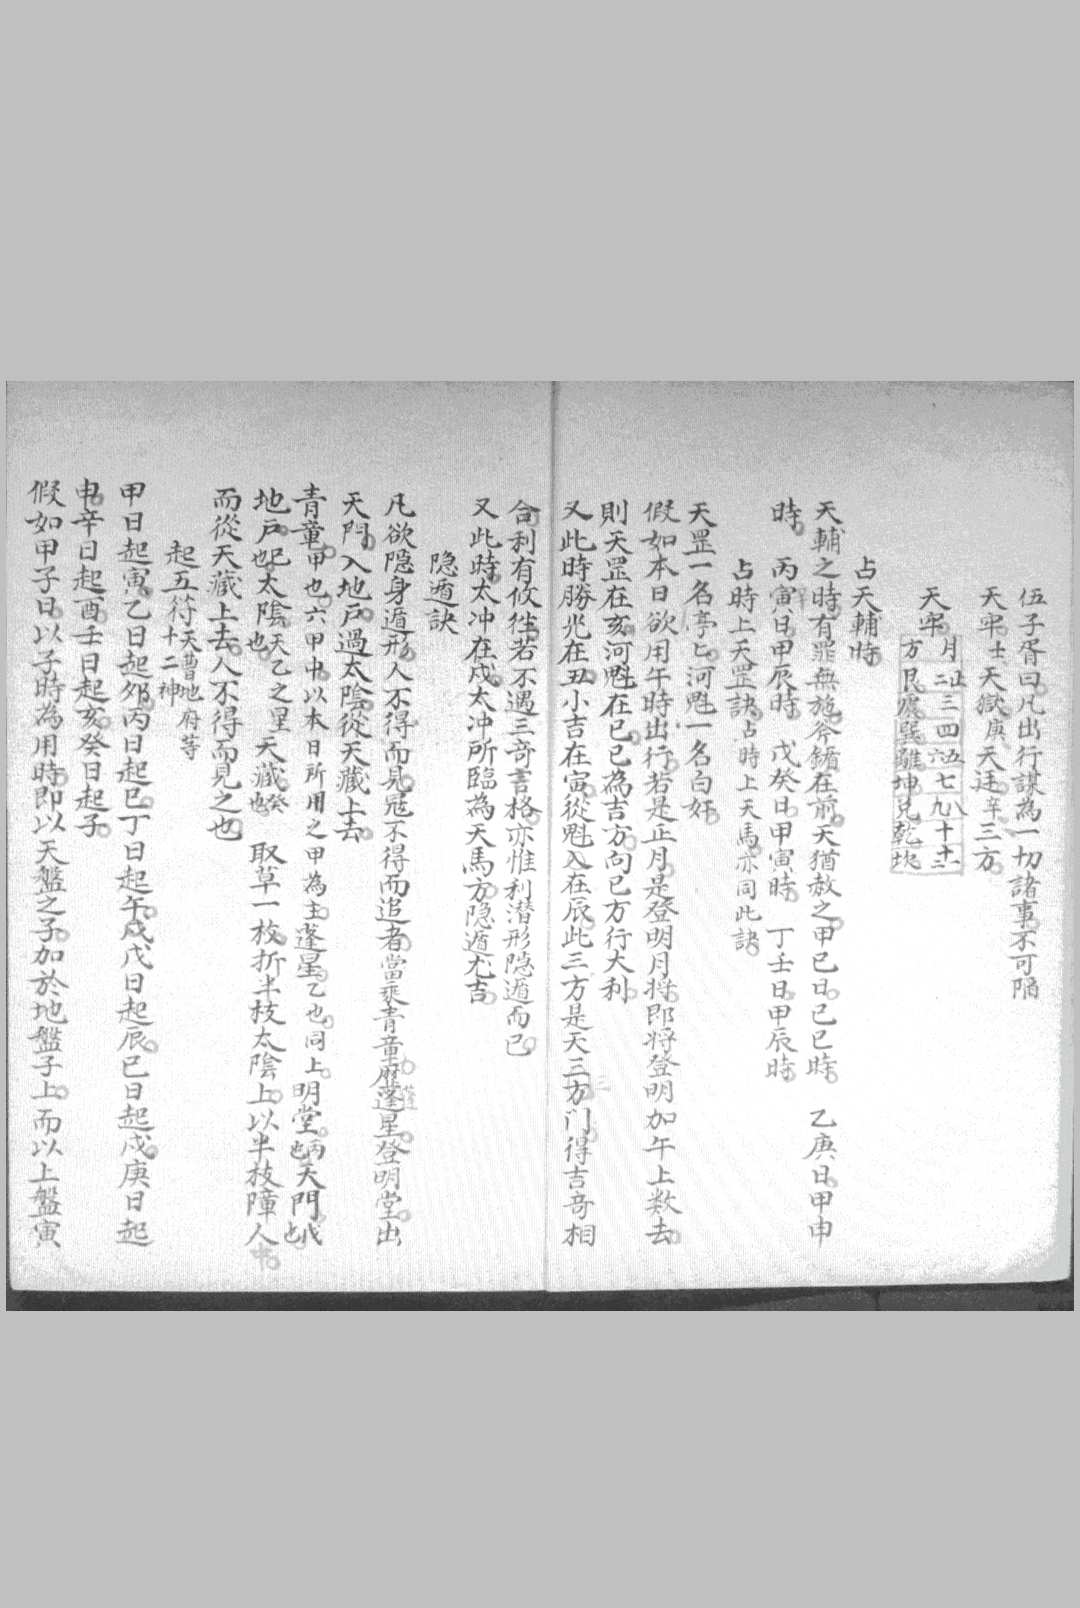 伍子胥曰凡出行謀為一切諸事不可陷
天牢壬天獄庚天廷辛三方
天牢
月 廿二 三 四 五六 七 八九 十 十一十二
方 艮 震 巽 離 坤 兌 乾 坎
占天輔時
天輔之時有罪無施斧鑕在前天猶赦之甲己日己巳時 乙庚日甲申
時 丙辛日甲辰時 戊癸日甲寅時 丁壬日甲辰時
占時上天罡訣占時上天馬亦同此訣
天罡一名亭亡河魁一名白奸
假如本日欲用午時出行若是正月是登明月將即將登明加午上数去
則天罡在亥河魁在巳巳為吉方向巳方行大利
又此時勝光在丑小吉在寅從魁入在辰此三方是天三方门得吉奇相
合利有攸往若不遇三奇吉格亦惟利潜形隐遁而已
又此時太冲在戌太冲所臨為天馬方隐遁尤吉
隐遁訣
凡欲隐身遁形人不得而見冦不得而追者當乘青童歷蓬星登明堂出
天門入地戸過太陰從天藏上去
青童甲也六甲中以本日所用之甲為主蓬星乙也同上明堂丙也天門戊也
地戸己也太陰天乙之里也天藏癸也 取草一枚折半枝太陰上以半枝障人中
而從天藏上去人不得而見之也
起五符天曹地府等十二神
甲日起寅乙日起夘丙日起巳丁日起午戊戊日起辰己日起戌庚日起
申辛日起酉壬日起亥癸日起子
假如甲子日以子時為用時即以天盤之子加於地盤子上而以上盤寅